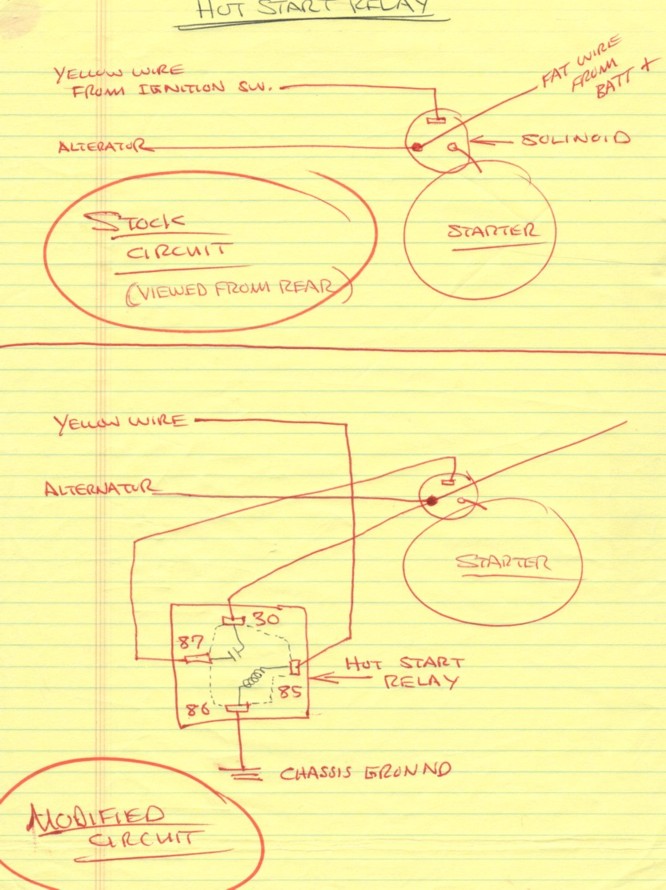 HOT START RELAY
YELLOW WIRE
FROM IGNITION SW.
FAT WIRE
FROM
BATT +
ALTERATOR
SOLINOID
STOCK
CIRCUIT
(VIEWED FROM REAR)
STARTER
YELLOW WIRE
ALTERNATOR
STARTER
30
87
HOT START
RELAY
85
86
CHASSIS GROUND
MODIFIED
CIRCUIT